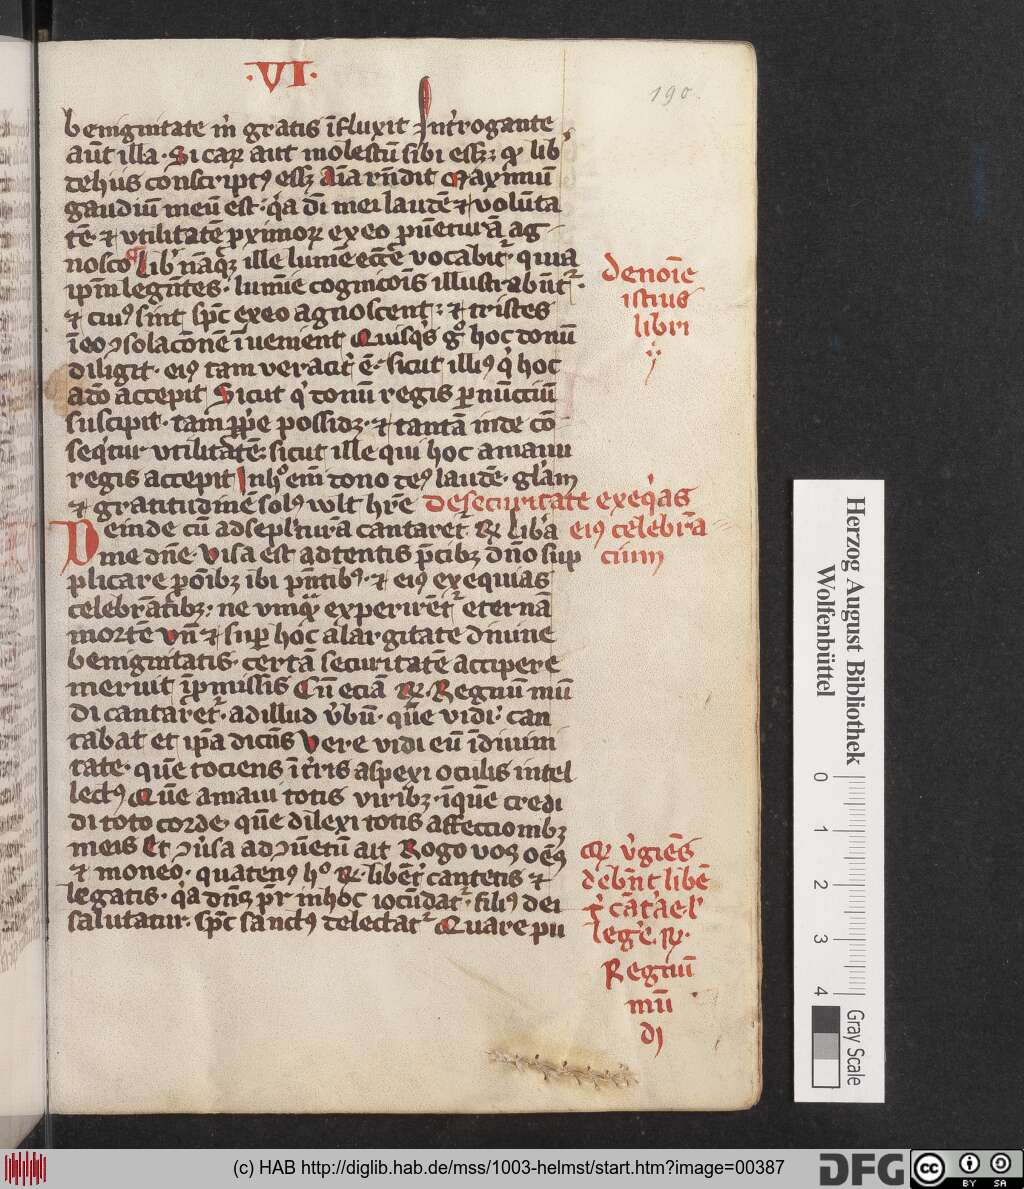 ·VI·
190.
benignitate m̄ gratis īfluxit Int'rogante
aūt illa · Si car̄ aut molestū sibi ess; qꝛ lib'
de hiis conscriptꝰ ess; Aīa rn̄dit Maximū
gaudiū meū est · q'a dei mei laudē ⁊ volūta
tē · ⁊ vtilitatē ꝓximoꝝ ex eo ꝓuēturā ag
nosco Lib' nāqꝫ ille lumē ecc̄e vocabit᷑ · quia
ip̄m legn̄tes · lumīe cognicōis illustrabūt᷑ ·
⁊ cuiꝰ sint sp̄c ex eo agnoscent · ⁊ tristes
ī eo ꝯsolacōnē īuenient Quisq's g° hoc donū
diligit · eiꝰ tam veracit' ē · sicut illiꝰ q' hoc
a deo accepit Sicut q' donū regis ꝑ nūcciū
suscipit · tam ꝓp̄e possidꝫ · ⁊ tantā inde cō
seq'tur vtilitatē · sicut ille qui hoc a manu
regis accepit In h° em̄ dono deꝰ laudē · gl'am
⁊ gratitudinē solꝰ wlt hr̄e De securitate exeq'as
Deinde cū ad sepl'turā cantaret᷑ ℞ Lib'a eiꝰ celebrā
me dn̄e · visa est adtentis p̄cibꝫ dn̄o sup cium
plicare ꝓ oībꝫ ibi p̄sn̄tibꝰ · ⁊ eiꝰ exequias
celebrātibꝫ · ne vmqᵃ experirēt᷑ eternā
mortē Vn̄ ⁊ suꝑ hoc a largitate diuine
benignitatis · certā securitatē accipere
meruit īpmissis Cū eciā ℞ · Regnū mū
di cantaret᷑ · ad illud v'bū · quē vidi · can
tabat et ip̄a dicēs Vere vidi eū ī diuini
tate · quē tociens ī t'ris aspexi oculis intel
lectꝰ Quē amaui totis viribꝫ · ī quē credi
di toto corde · quē dilexi totis affectionibꝫ
meis Et ꝯu'sa ad ꝯuētū ait Rogo vos om̄s
⁊ moneo · quatenꝰ h° ℞ · libēt' cantetis ⁊
legatis · q'a dn̄s p̄r in hoc iocūdat᷑ · filiꝰ dei
salutatur · sp̄c sanctꝰ delectat᷑ Quare pu
de noīe
istius
libri
Qꝛ v'giēs
debn̄t libē
t' cātāe · l'
leg'e · ℞ ·
Regnū
mū
di
Herzog August Bibliothek
Wolfenbüttel
0 1 2 3 4
Gray Scale
(c) HAB http://diglib.hab.de/mss/1003-helmst/start.htm?image=00387
DFG
cc BY SA